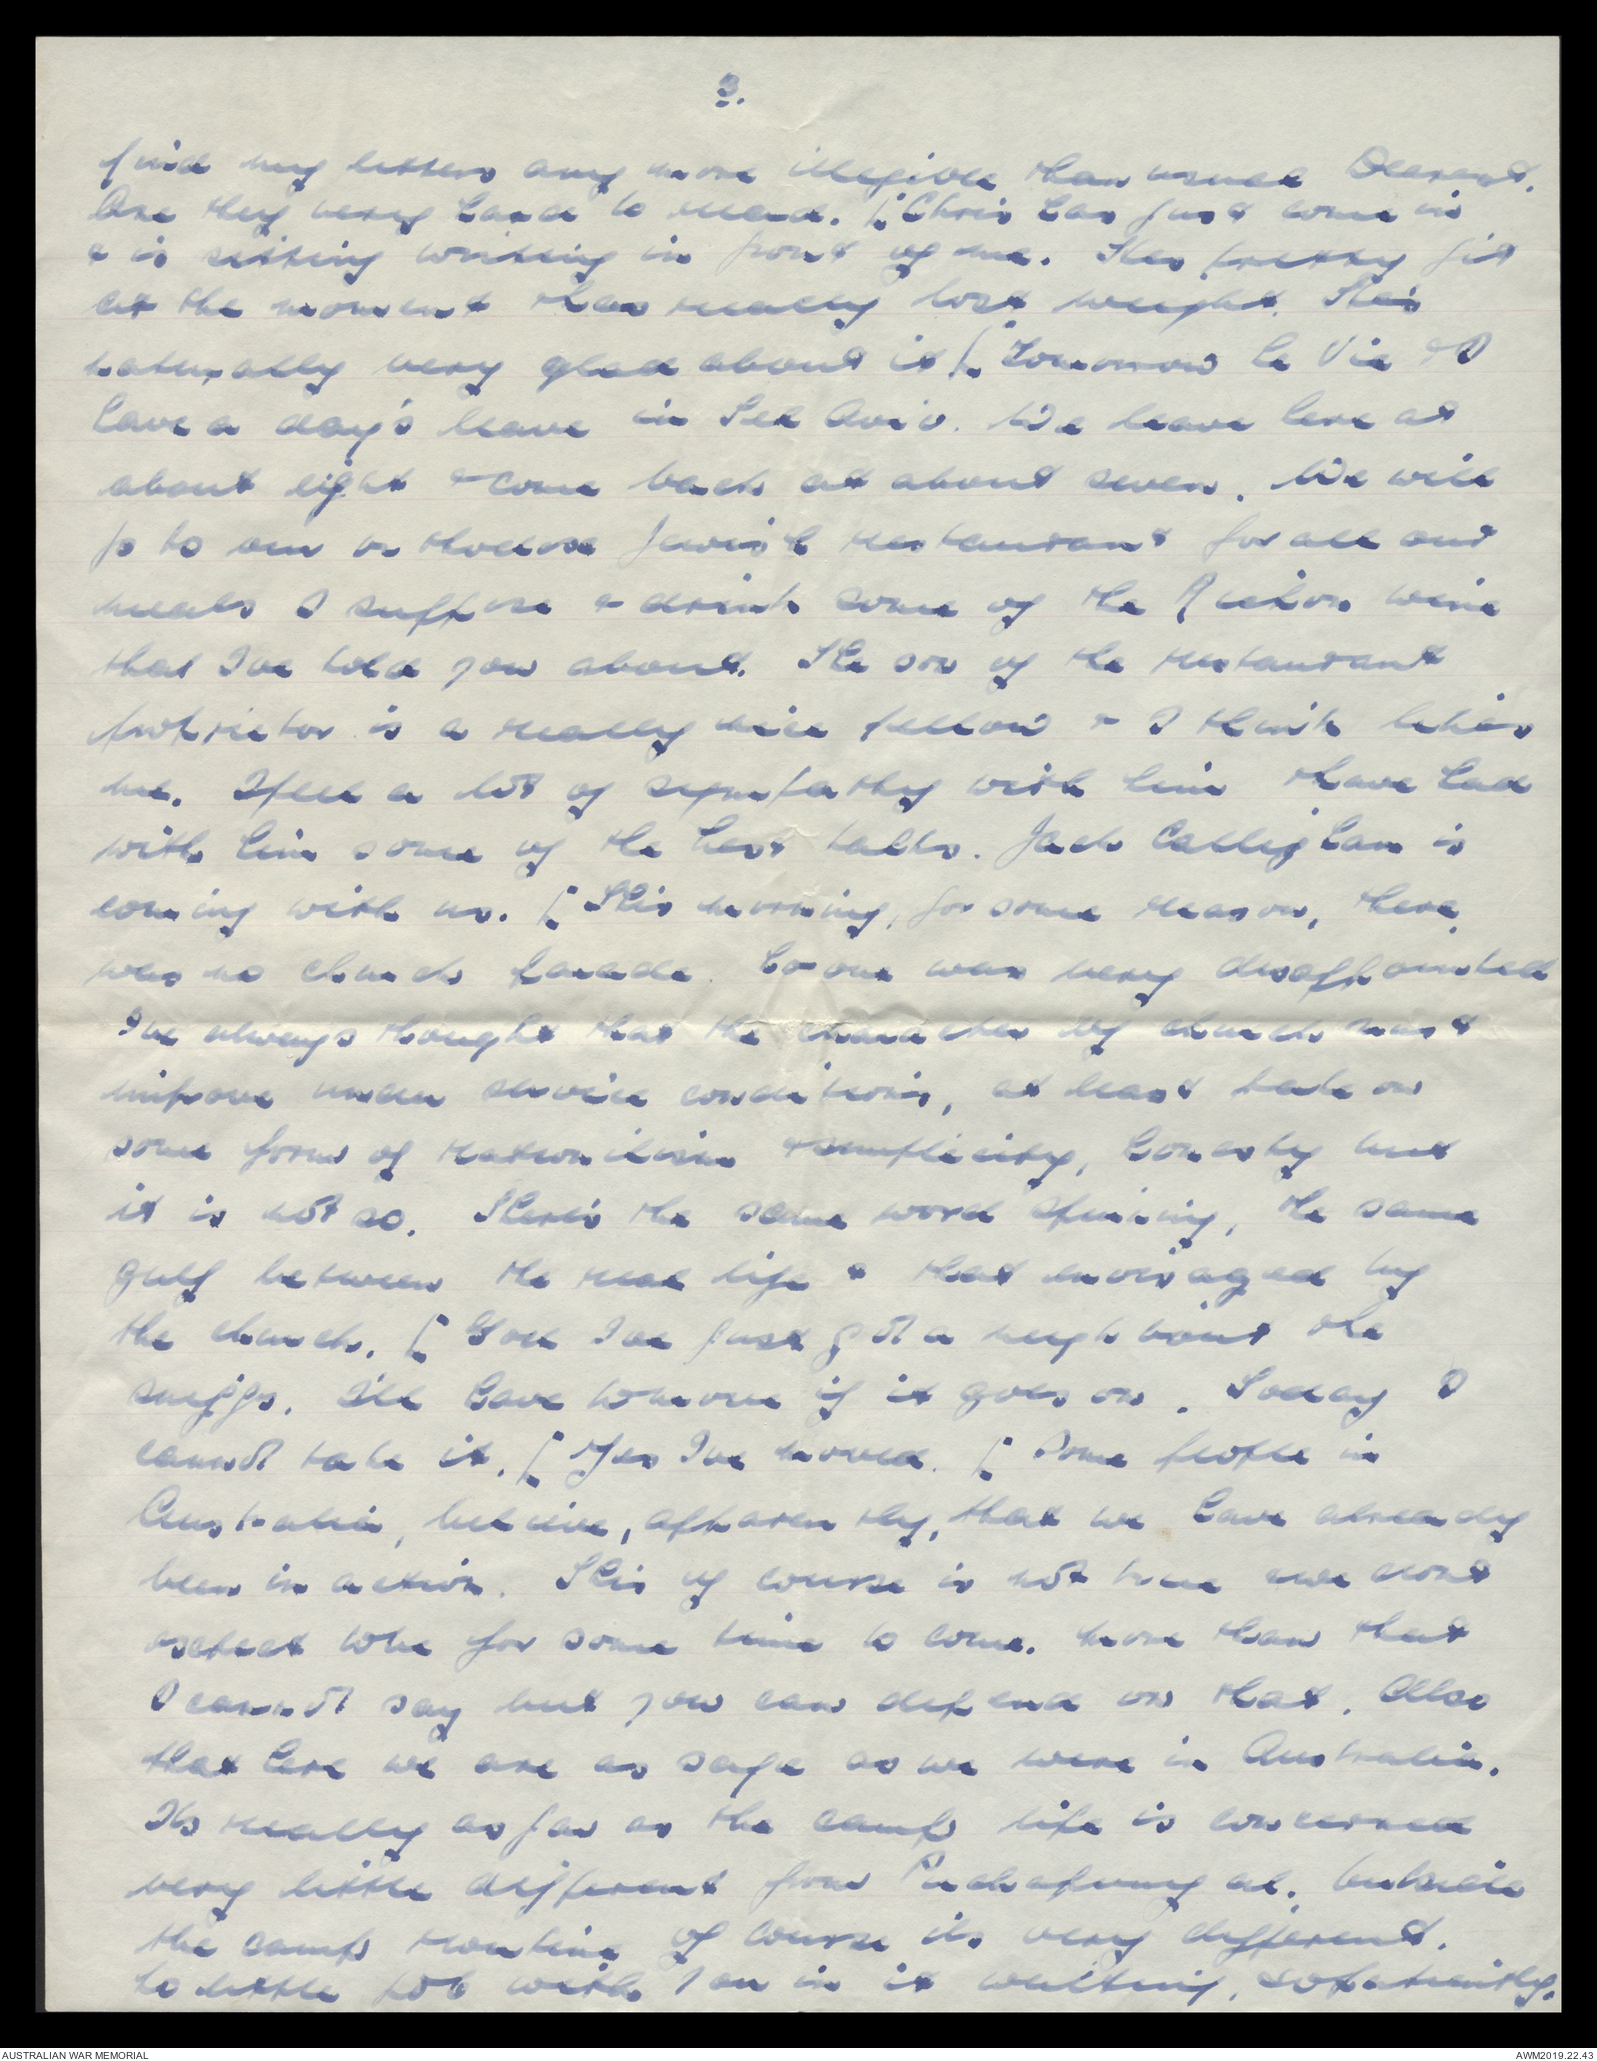 3.
find my letters any more illegible than usual Dearest.
Are they very hard to read. [Chris has just come in
& is sitting writing in front of me. Hes pretty fit
at the moment & has really lost weight. He's
naturally very glad about it [Tomorrow he Vic & I
have a day's leave in Tel Aviv. We leave here at
about eight & come back at about seven. We will
go to our Jewish restaurant for all our
meals I suppose & drink some of the Richon wine
that I've told you about. The son of the restaurant
proprietor is a really nice fellow & I think likes
me. I feel a lot of sympathy with him & have had
with him some of the best talks. Jack Callighan is
coming with us. [This morning, for some reason, there
was no church parade. No one was very disappointed
I've always thought that the character of church must
improve under service conditions, at least take on
some form of & simplicity, honesty but
it is not so. There's the same word spinning, the
same
gulf between the real life & that envisaged by
the church. [God I've just got a neigh bour the
sniffs. I'll have to move if it goes on. Today I
cannot take it. [Yes I've moved. [Some people in
Australia, believe, apparently, that we have already
been in action. This of course is not true & we dont
expect to be for some time to come. More than that
I cannot say but you can depend on that. Also
that here we are as safe as we were in Australia.
Its really as far as the camp life is concerned
very little different from Puckapunyal. Outside
the camp routine of course its very different.
No little pot with you in it waiting, so patiently.
AUSTRALIAN WAR MEMORIAL
AWM2019.22.43